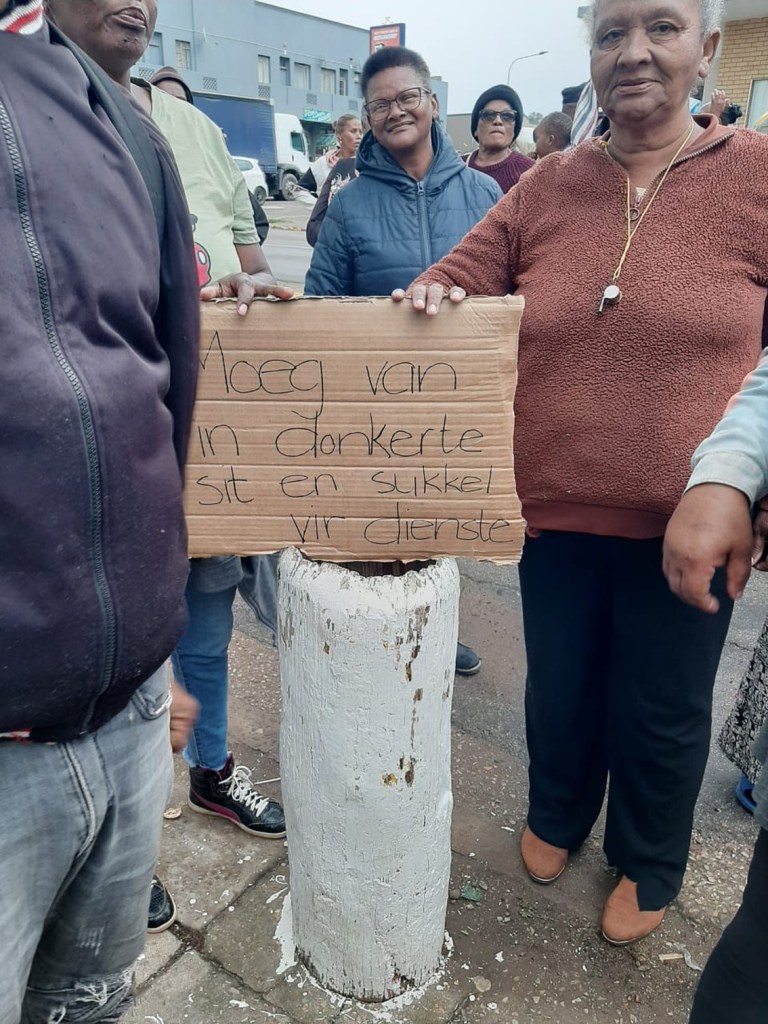 Moeg van
in donkerte
sit en sukkel
vir dienste